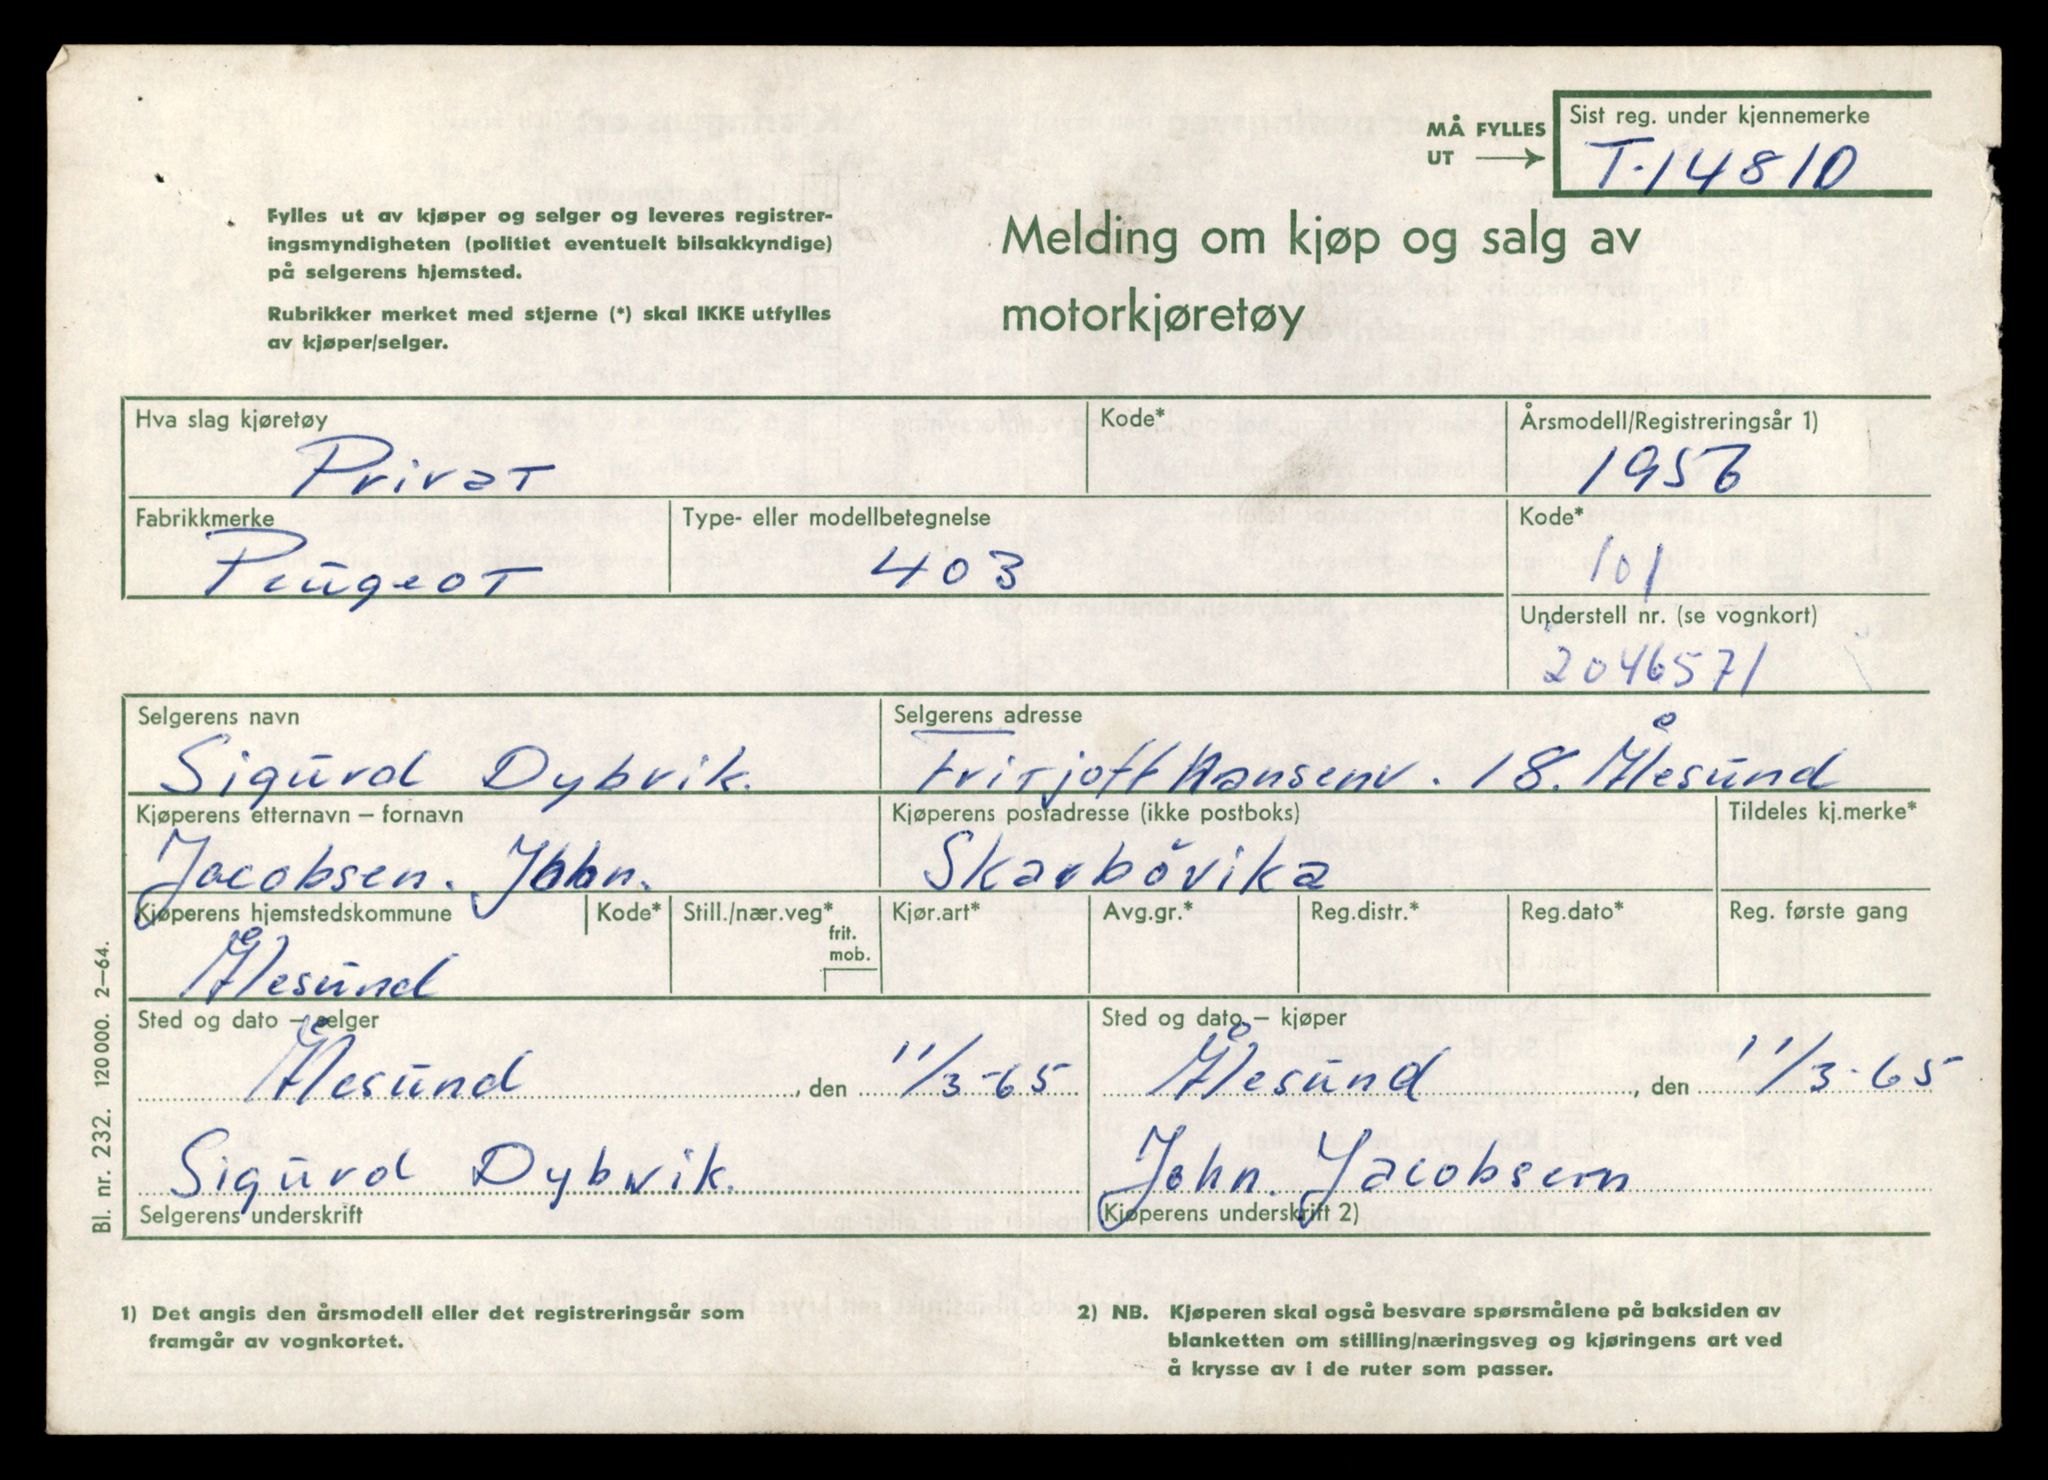 MÅ FYLLES
UT
Sist reg. under kjennemerke
T-14810
Fylles ut av kjøper og selger og leveres registrer-
ingsmyndigheten (politiet eventuelt bilsakkyndige)
på selgerens hjemsted.
Rubrikker merket med stjerne (*) skal IKKE utfylles
av kjøper/selger.
Melding om kjøp og salg av
motorkjøretøy
Hva slag kjøretøy
Privat
Kode*
Årsmodell/Registreringsår 1)
1956
Fabrikkmerke
Peugeot
Type- eller modellbetegnelse
403
Kode*
101
Understell nr. (se vognkort)
2046571
Selgerens navn
Sigurd Dybvik.
Selgerens adresse
Fritjoff Hansenv. 18. Ålesund
Kjøperens etternavn – fornavn
Jacobsen. John.
Kjøperens postadresse (ikke postboks)
Skarbövika
Tildeles kj.merke*
Kjøperens hjemstedskommune
Ålesund
Kode*
Still./nær.veg*
frit.
mob.
Kjør.art*
Avg.gr.*
Reg.distr.*
Reg.dato*
Reg. første gang
Sted og dato – selger
Ålesund, den 11/3-65
Sted og dato – kjøper
Ålesund, den 11/3-65
Sigurd Dybvik.
Selgerens underskrift
John. Jacobsen
Kjøperens underskrift 2)
Bl. nr. 232. 120 000. 2–64.
1) Det angis den årsmodell eller det registreringsår som
framgår av vognkortet.
2) NB. Kjøperen skal også besvare spørsmålene på baksiden av
blanketten om stilling/næringsveg og kjøringens art ved
å krysse av i de ruter som passer.